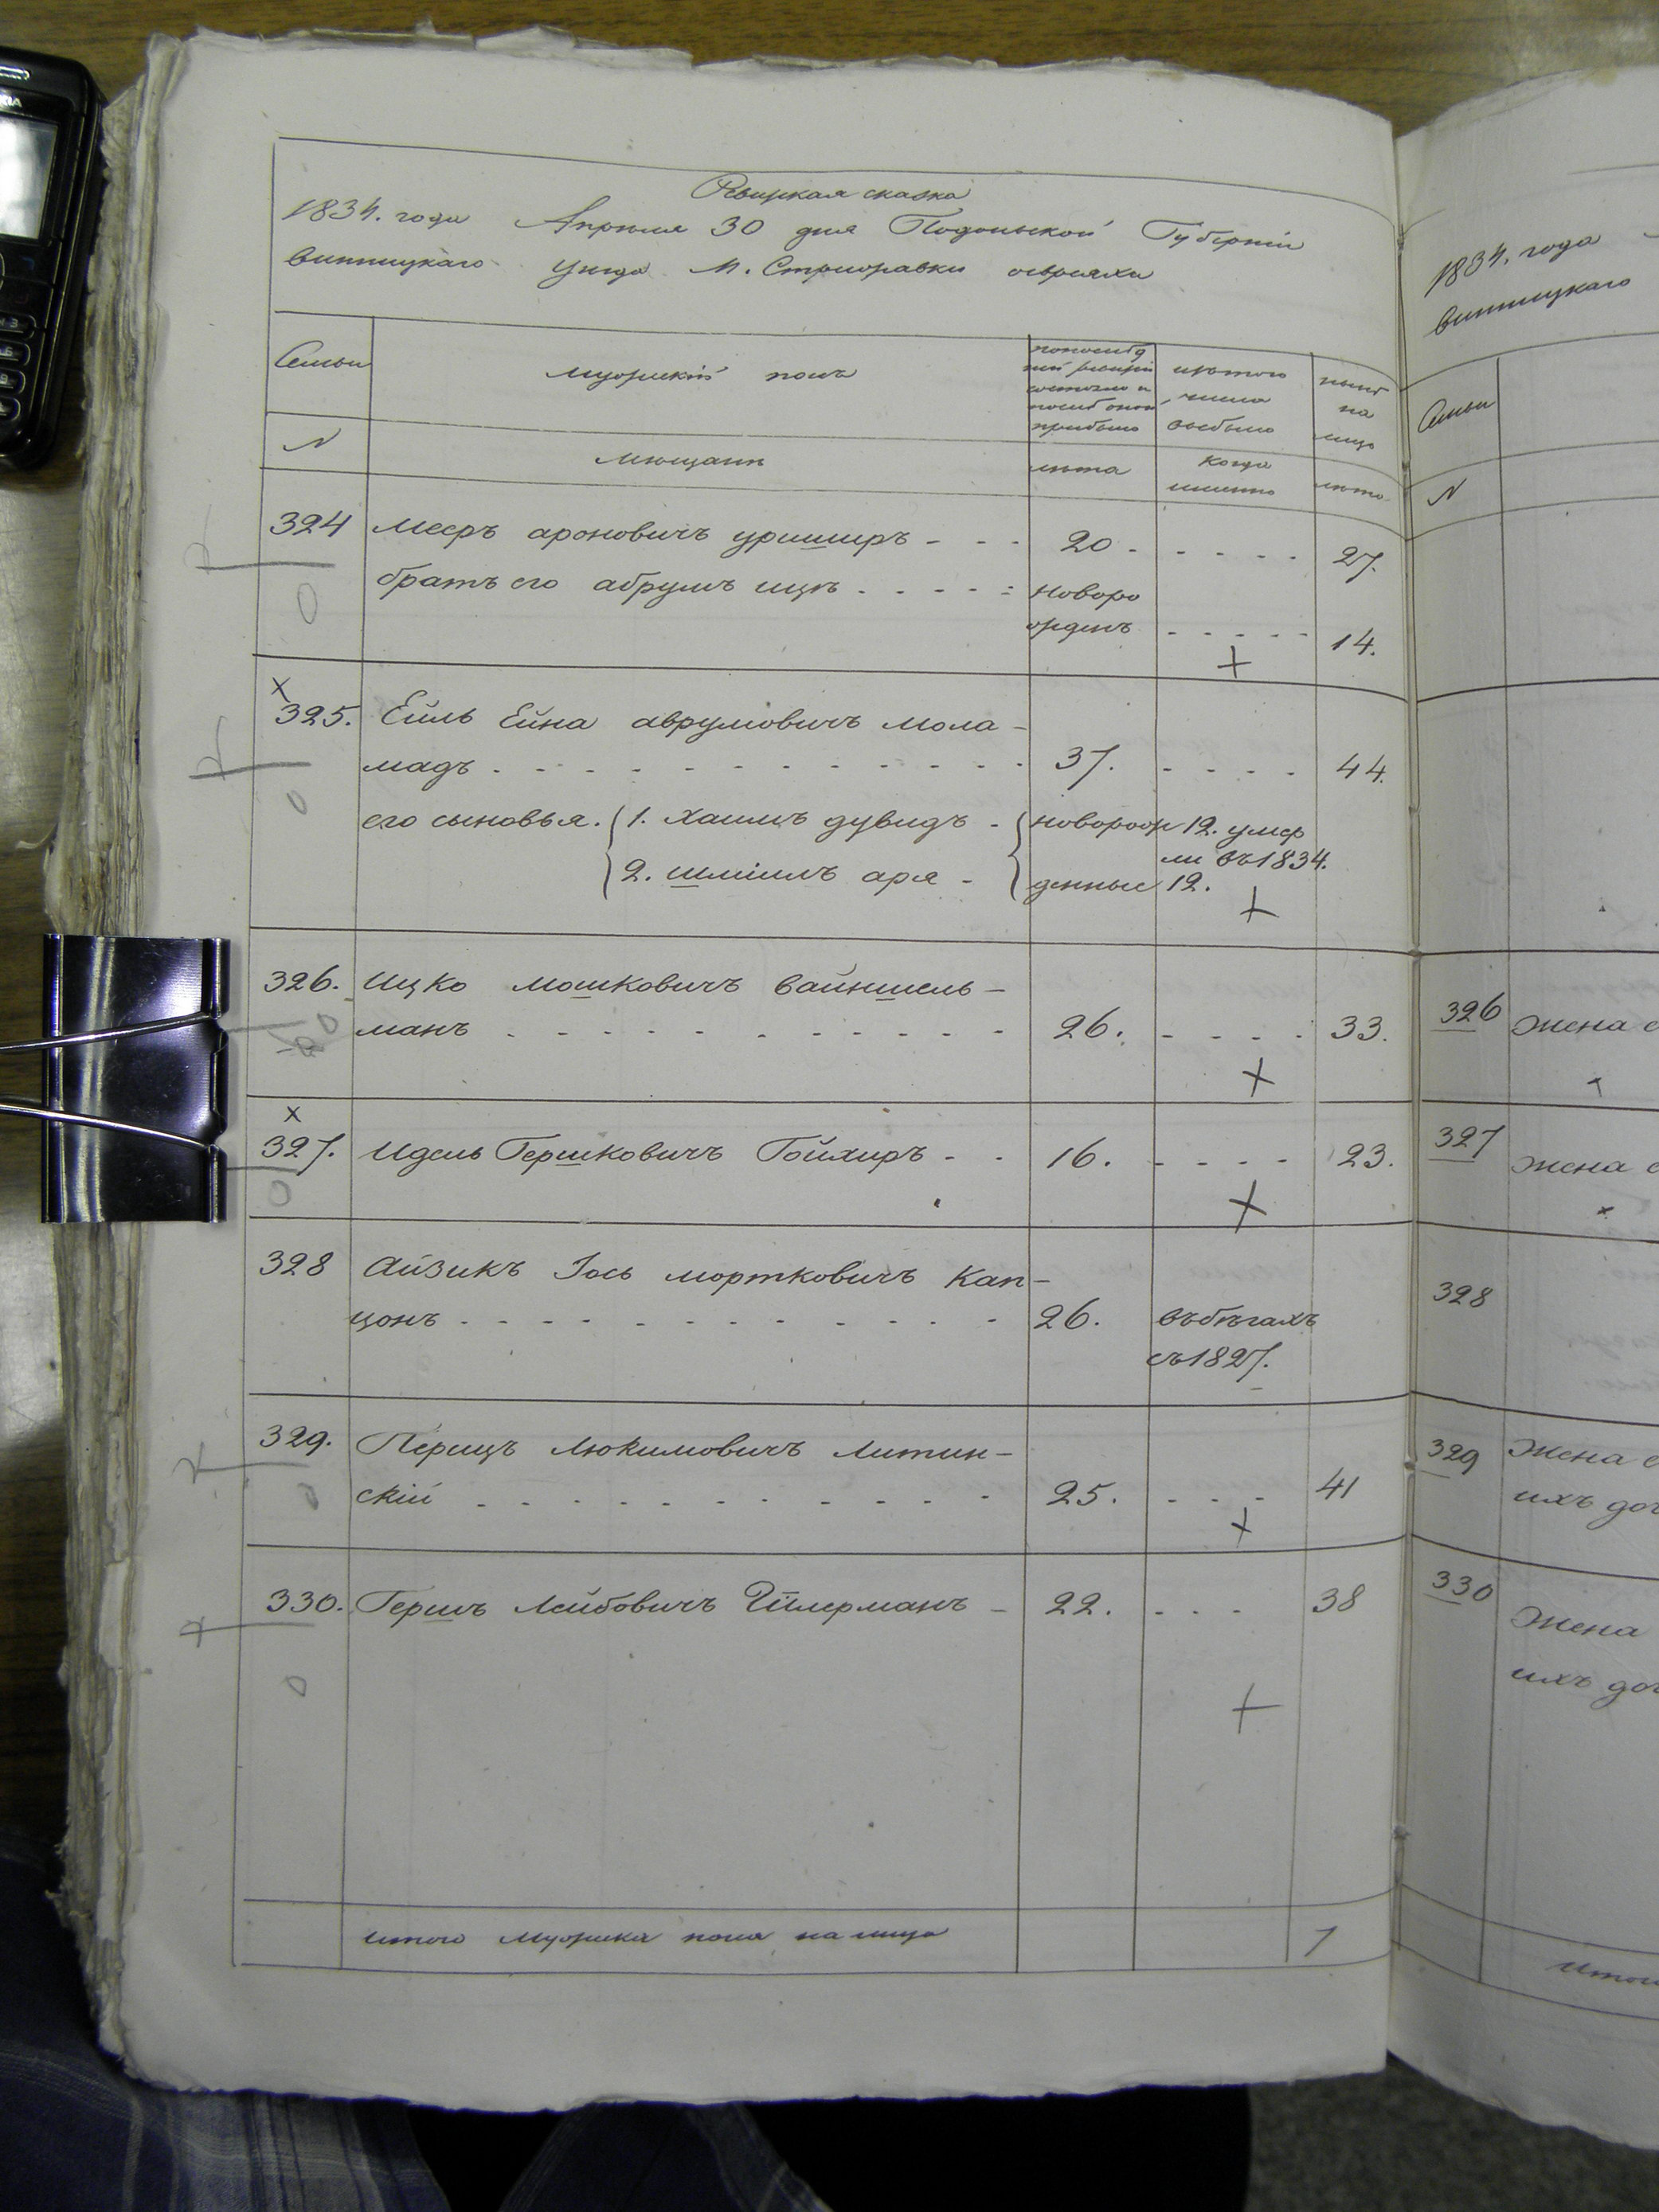 Ревизская сказка
1834. года Апреля 30 дня Подольской Губерніи
винницкаго уезда м. Стрижавки о евреяхъ
Семьи
мужескій полъ
по послѣд
ней ревизіи
состояло и
послѣ оной
прибыло
изъ того
числа
выбыло
нынѣ
на
лицо
N
мѣщане
лѣта
когда
именно
лѣта
324 Меєръ ароновичъ уриширъ - - - 20. - - - - 27.
братъ его абрумъ ицъ . - - - - новоро
жденъ - - - - - 14.
325. Ейль Ейна аврумовичъ мола-
мадъ - - - - 37. - - - - 44.
его сыновья. 1. хаимъ дувидъ - новорож 12. умер
ли въ 1834.
2. шміилъ аря - денные 12.
326. Ицко мошковичъ вайншель-
манъ - - - - 26. - - - - 33.
327. Идель Гершковичъ Гойхиръ - - 16. - - - - 23.
328 Айзикъ Іось мортковичъ Кап-
цонъ - - - - 26. въбѣгахъ
съ 1827.
329. Перецъ Люкимовичъ Литин-
скій - - - - 25. - - - 41
330. Гершъ Лейбовичъ Гілерманъ - 22. - - - 38
итого мужеска пола на лицо 7
1834. года
винницкаго
Семьи
N
326 Жена
327 жена
328
329 Жена
ихъ доч
330 Жена
ихъ доч
Итого
NOKIA